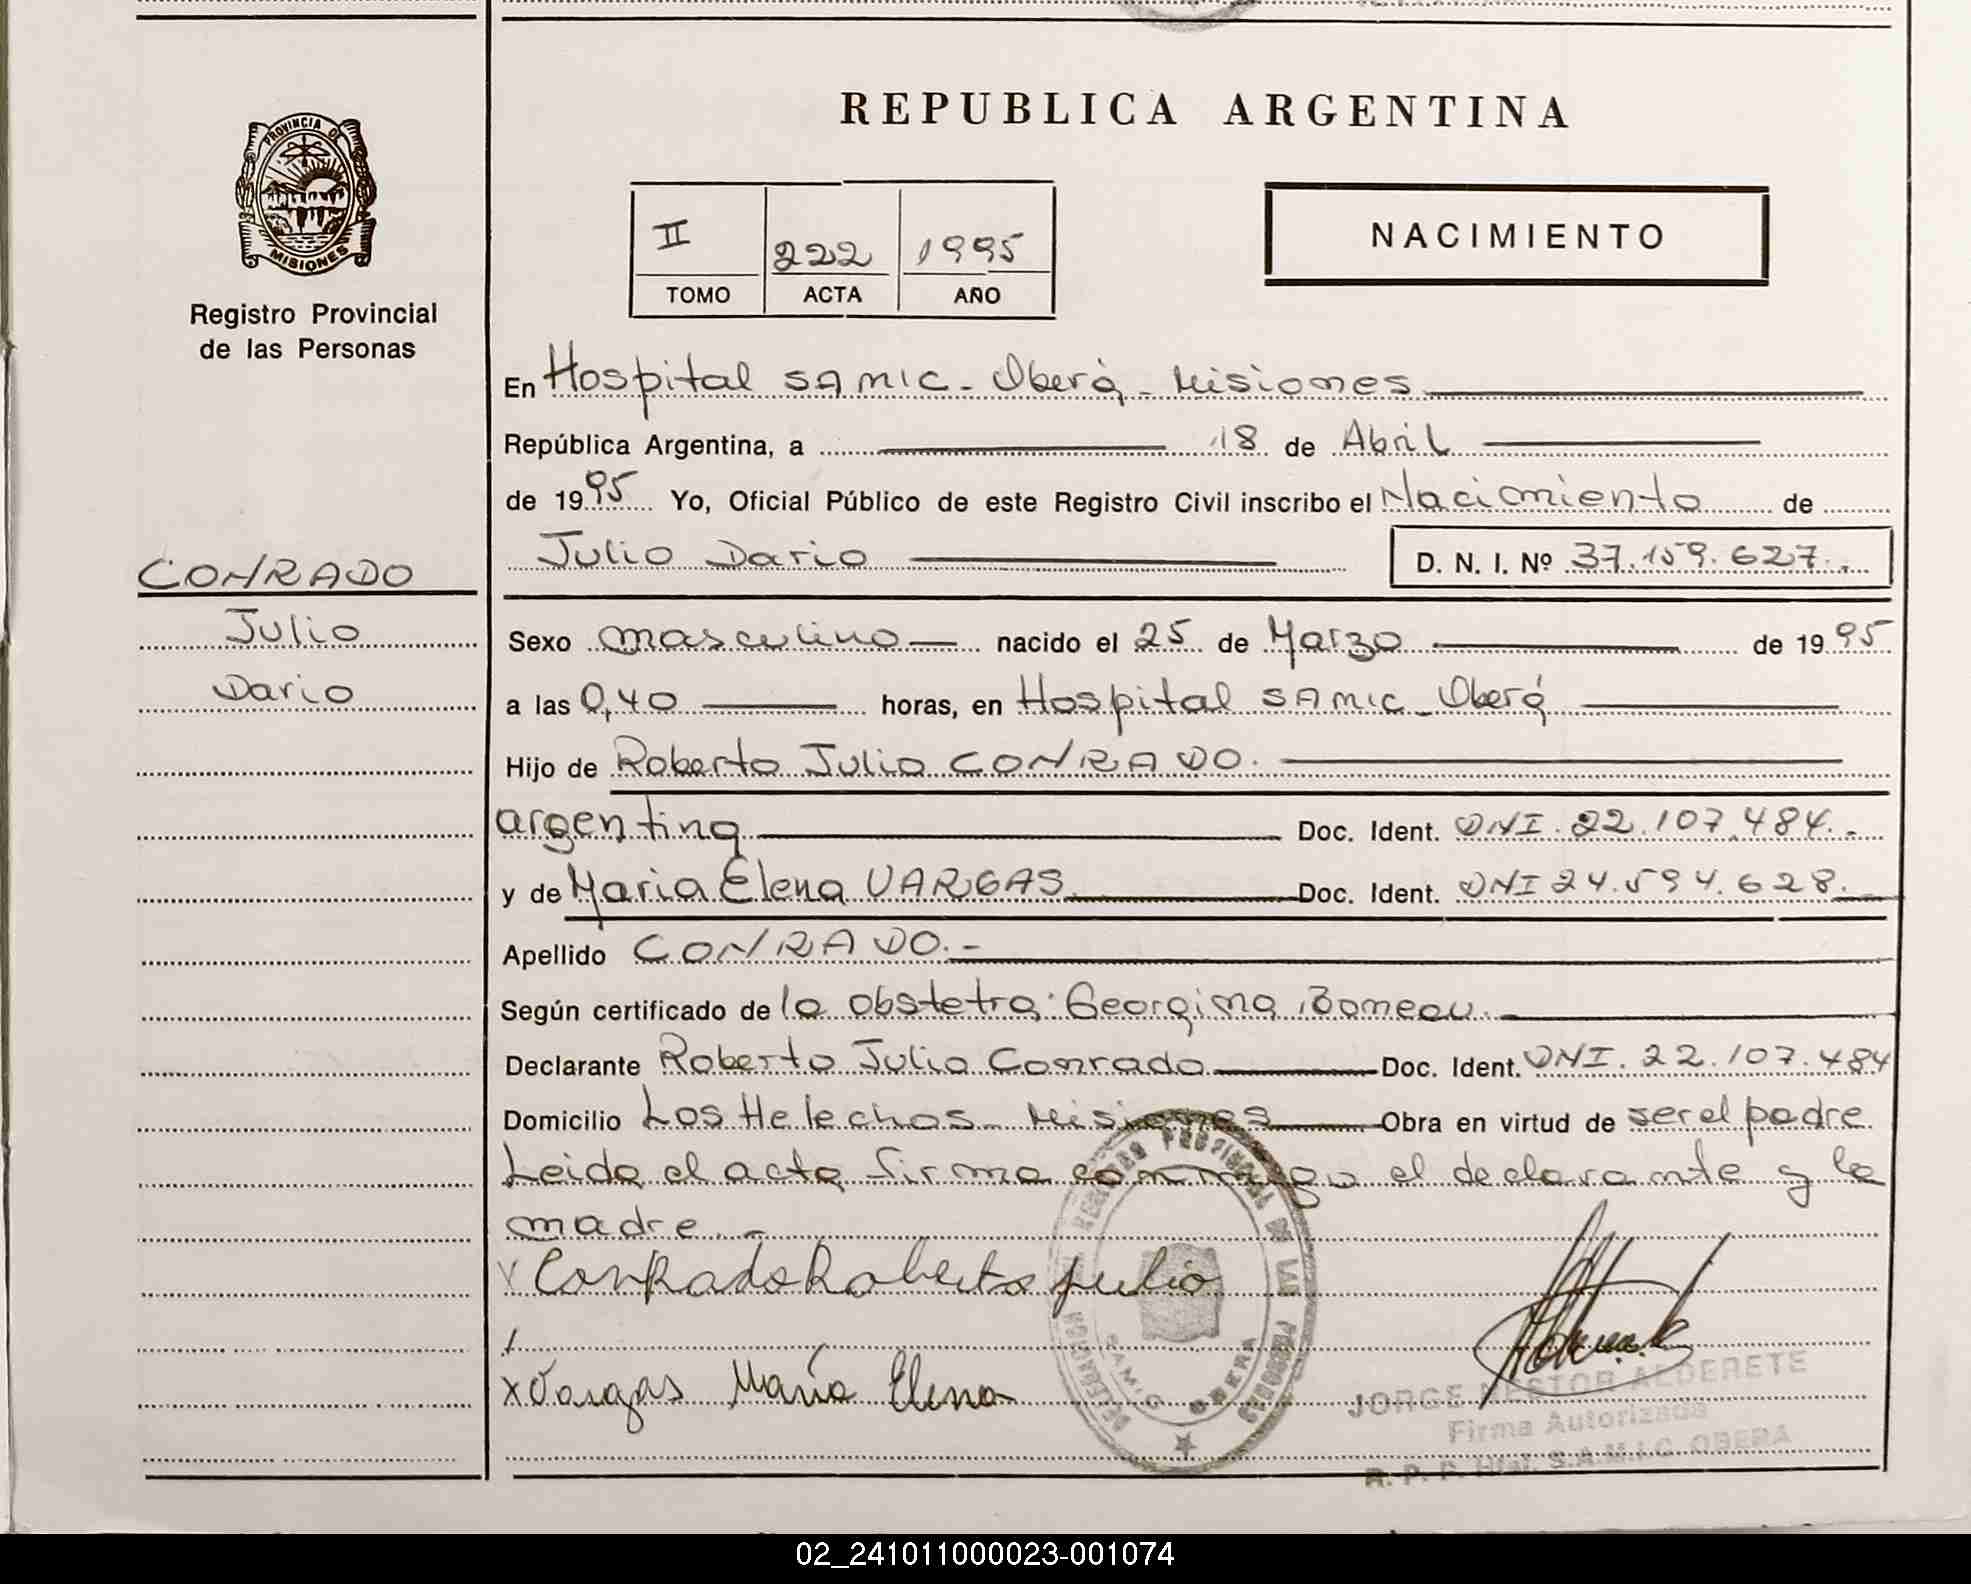 REPUBLICA ARGENTINA
PROVINCIA DE
MISIONES
Registro Provincial
de las Personas
II 222 1995
TOMO ACTA AÑO
NACIMIENTO
En Hospital SAMIC - Oberá - Misiones
República Argentina, a 18 de Abril
de 1995 Yo, Oficial Público de este Registro Civil inscribo el Nacimiento de
Julio Dario D. N. I. Nº 37.159.627.-
CONRADO
Julio
Dario
Sexo masculino nacido el 25 de Marzo de 1995
a las 0,40 horas, en Hospital SAMIC - Oberá
Hijo de Roberto Julio CONRADO.
argentina Doc. Ident. DNI. 22.107.484.-
y de Maria Elena VARGAS Doc. Ident. DNI 24.594.628.
Apellido CONRADO.-
Según certificado de la obstetra: Georgina
Declarante Roberto Julio Conrado Doc. Ident. DNI. 22.107.484
Domicilio Los Helechos - Misiones Obra en virtud de ser el padre
Leida el acta firma conmigo el declarante y la
madre.-
x Conrado Roberto Julio
x Vargas María Elena
REGISTRO PROVINCIAL DE LAS PERSONAS
DELEGACION
SAMIC OBERA
JORGE NESTOR ALDERETE
Firma Autorizada
R. P. P. Htal. S.A.M.I.C OBERA
02_241011000023-001074